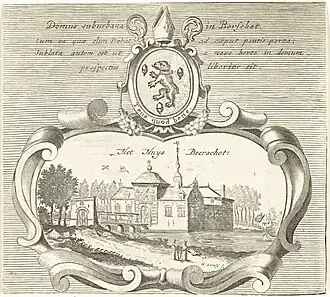 Domus suburbana in Berschot.
cum ad caput pontis porta;
Sublata autem est ut a novo horto in domum
prospectus liberior sit
quod bene
Het Huys Beerschot.